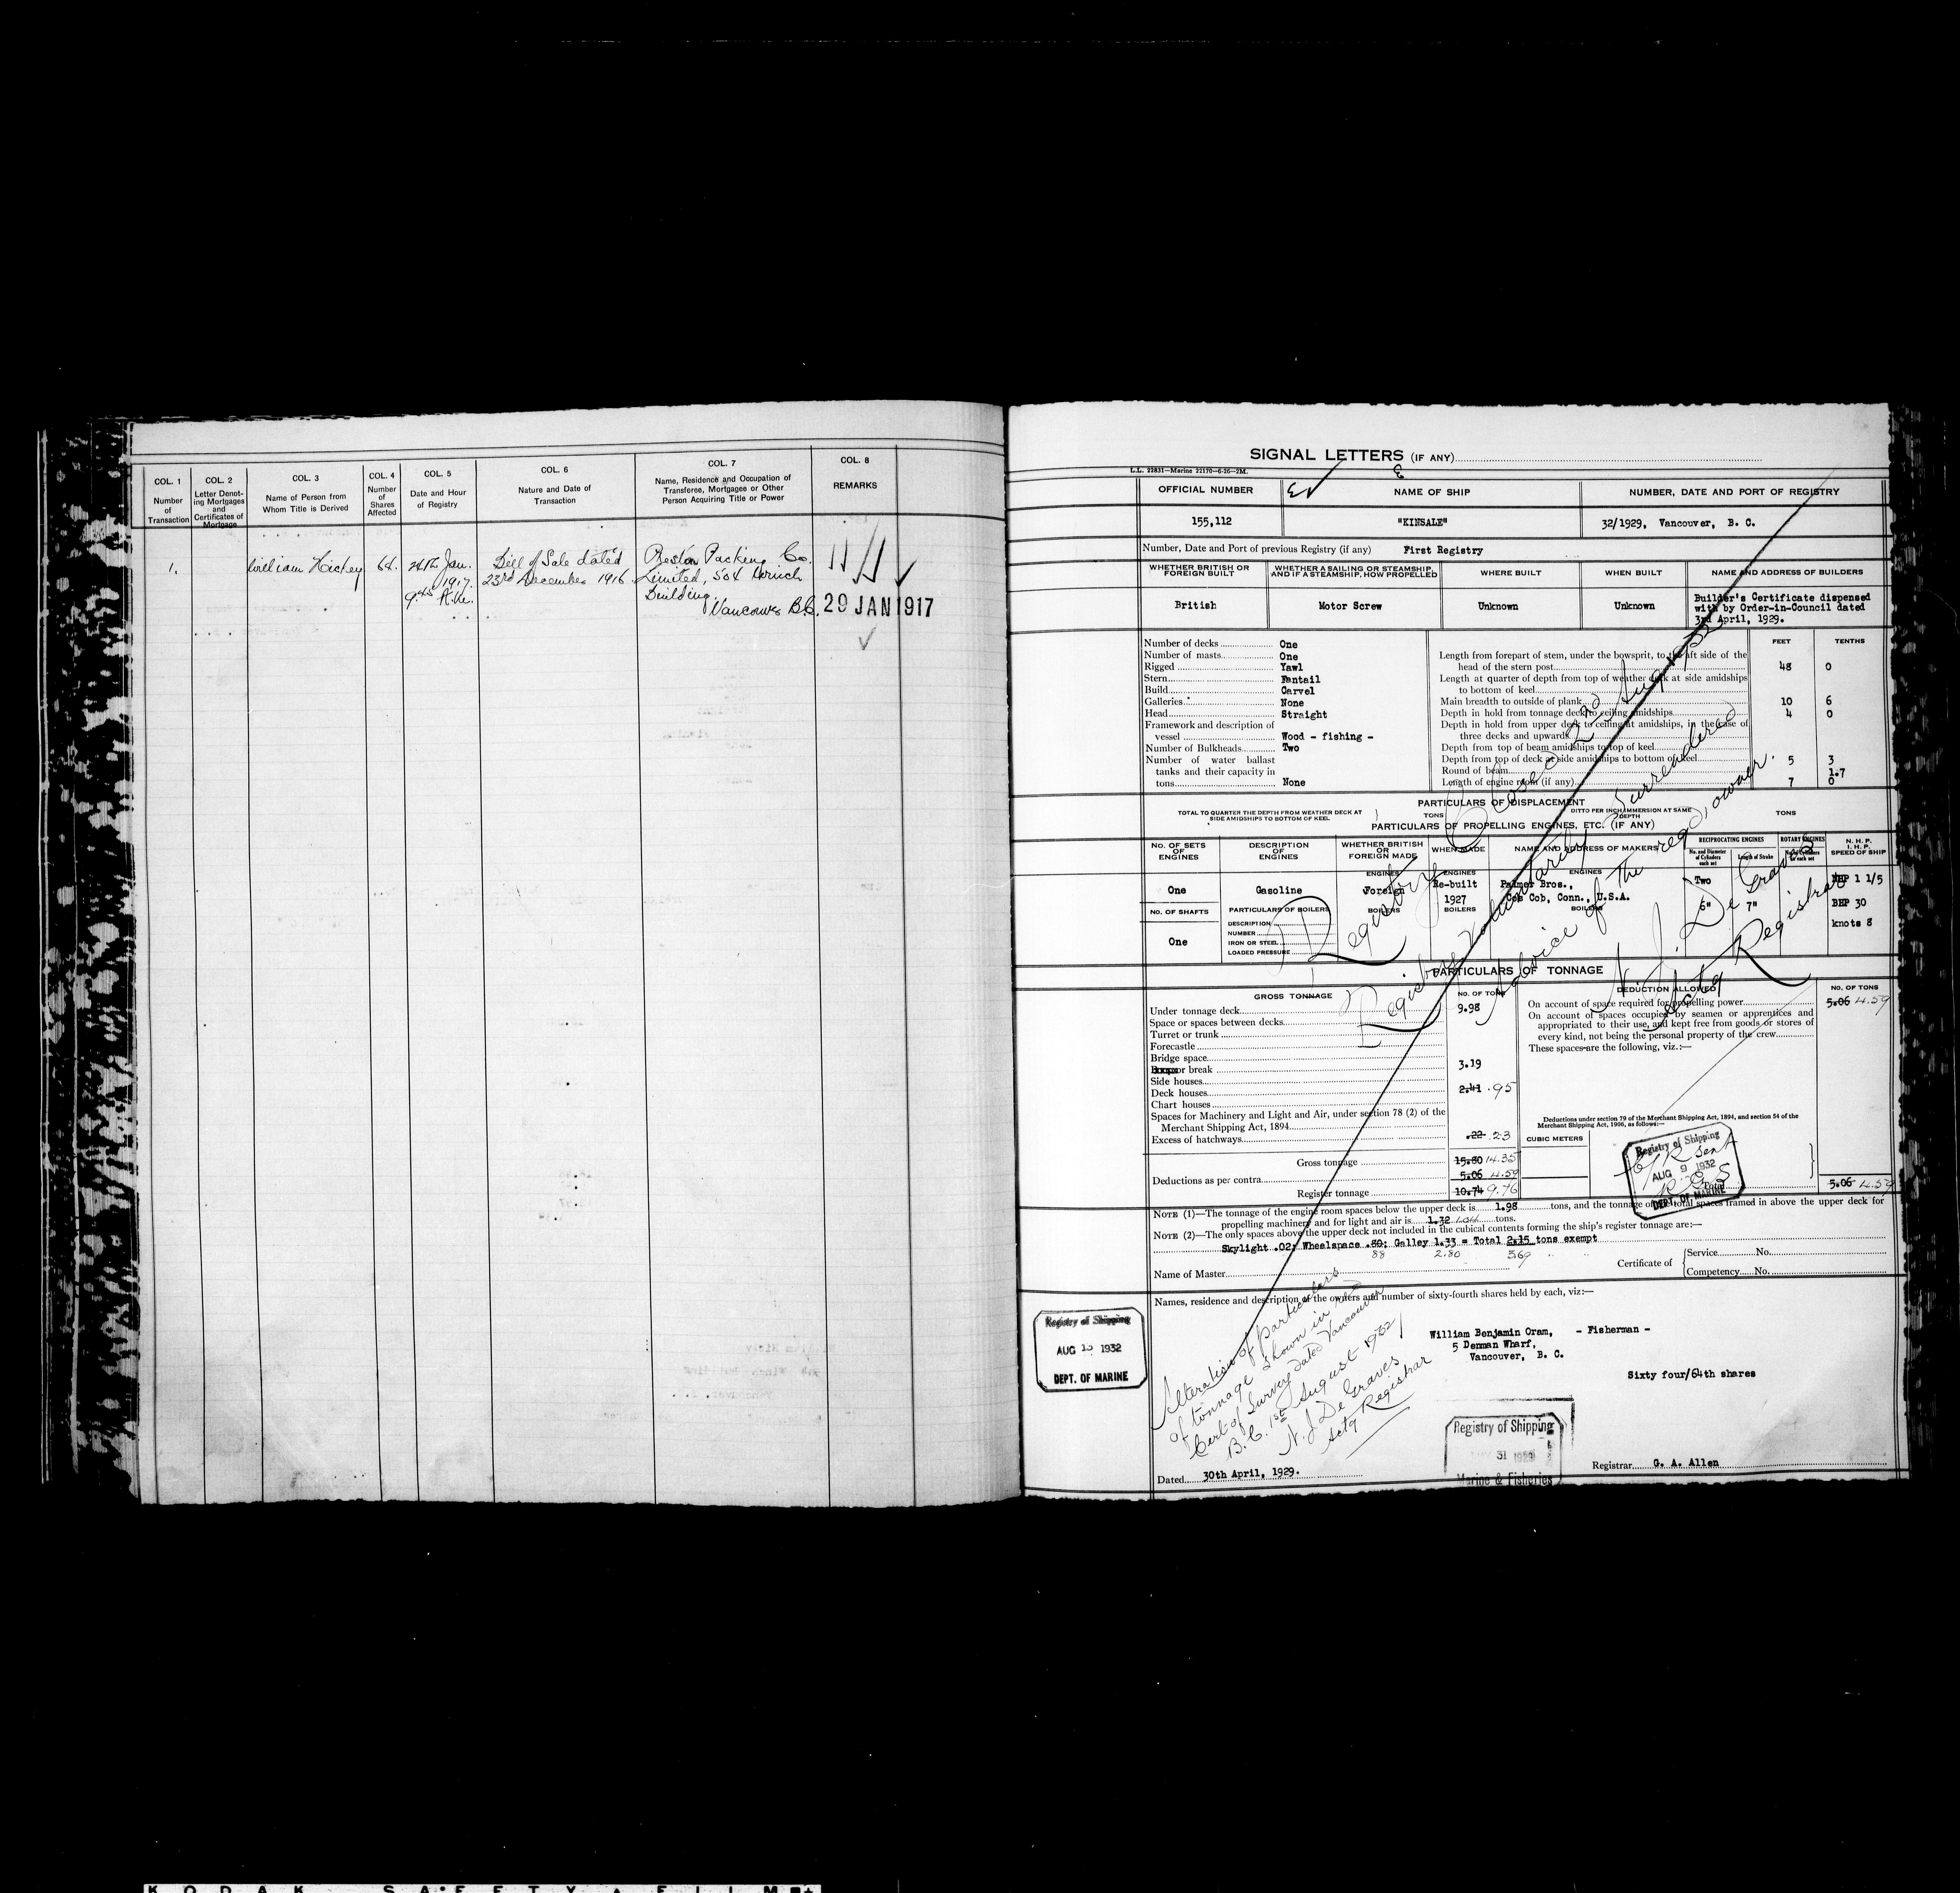 COL. 1
Number
of
Transaction
COL. 2
Letter Denot-
ing Mortgages
and
Certificates of
Mortgage
COL. 3
Name of Person from
Whom Title is Derived
COL. 4
Number
of
Shares
Affected
COL. 5
Date and Hour
of Registry
COL. 6
Nature and Date of
Transaction
COL. 7
Name, Residence and Occupation of
Transferee, Mortgagee or Other
Person Acquiring Title or Power
COL. 8
REMARKS
1.
William Hickey
64.
24th Jan.
1917.
9.45 A.M.
Bill of Sale dated
23rd December 1916
Preston Packing Co.
Limited, 504
Building,
Vancouver B.C.
29 JAN 1917
SIGNAL LETTERS (IF ANY)
L.L. 22831—Marine 22170—6-26—2M.
OFFICIAL NUMBER
NAME OF SHIP
NUMBER, DATE AND PORT OF REGISTRY
155,112
"KINSALE"
32/1929, Vancouver, B. C.
Number, Date and Port of previous Registry (if any) First Registry
WHETHER BRITISH OR
FOREIGN BUILT
WHETHER A SAILING OR STEAMSHIP
AND IF A STEAMSHIP, HOW PROPELLED
WHERE BUILT
WHEN BUILT
NAME AND ADDRESS OF BUILDERS
British
Motor Screw
Unknown
Unknown
Builder's Certificate dispensed
with by Order-in-Council dated
3rd April, 1929.
Number of decks One
Number of masts One
Rigged Yawl
Stern Fantail
Build Carvel
Galleries None
Head Straight
Framework and description of
vessel Wood - fishing -
Number of Bulkheads Two
Number of water ballast
tanks and their capacity in
tons None
FEET TENTHS
Length from forepart of stem, under the bowsprit, to the aft side of the
head of the stern post 48 0
Length at quarter of depth from top of weather deck at side amidships
to bottom of keel
Main breadth to outside of plank 10 6
Depth in hold from tonnage deck to ceiling amidships 4 0
Depth in hold from upper deck to ceiling at amidships, in the case of
three decks and upwards
Depth from top of beam amidships to top of keel
Depth from top of deck at side amidships to bottom of keel 5 3
Round of beam 1.7
Length of engine room (if any) 7 0
PARTICULARS OF DISPLACEMENT
TOTAL TO QUARTER THE DEPTH FROM WEATHER DECK AT
SIDE AMIDSHIPS TO BOTTOM OF KEEL
TONS
DITTO PER INCH IMMERSION AT SAME
DEPTH
TONS
PARTICULARS OF PROPELLING ENGINES, ETC. (IF ANY)
NO. OF SETS
OF
ENGINES
DESCRIPTION
OF
ENGINES
WHETHER BRITISH
OR
FOREIGN MADE
WHEN MADE
NAME AND ADDRESS OF MAKERS
RECIPROCATING ENGINES
No. and Diameter
of Cylinders
each set
Length of Stroke
ROTARY ENGINES
No. of Cylinders
in each set
N. H. P.
I. H. P.
SPEED OF SHIP
ENGINES
ENGINES
ENGINES
One
Gasoline
Foreign
Re-built
1927
Palmer Bros.,
Cos Cob, Conn., U.S.A.
Two
6"
7"
NHP 1 1/5
BHP 30
knots 8
NO. OF SHAFTS
One
PARTICULARS OF BOILERS
DESCRIPTION
NUMBER
IRON OR STEEL
LOADED PRESSURE
BOILERS
BOILERS
BOILERS
PARTICULARS OF TONNAGE
GROSS TONNAGE
NO. OF TONS
Under tonnage deck 9.98
Space or spaces between decks
Turret or trunk
Forecastle
Bridge space
or break 3.19
Side houses
Deck houses 2.41 .95
Chart houses
Spaces for Machinery and Light and Air, under section 78 (2) of the
Merchant Shipping Act, 1894
Excess of hatchways .22 .23
Gross tonnage 15.80 14.35
Deductions as per contra 5.06 4.59
Register tonnage 10.74 9.76
DEDUCTION ALLOWED
NO. OF TONS
On account of space required for propelling power 5.06 4.59
On account of spaces occupied by seamen or apprentices and
appropriated to their use, and kept free from goods or stores of
every kind, not being the personal property of the crew
These spaces are the following, viz.:—
Deductions under section 79 of the Merchant Shipping Act, 1894, and section 54 of the
Merchant Shipping Act, 1906, as follows:—
CUBIC METERS
Registry of Shipping
AUG 9 1932
DEPT. OF MARINE
5.06 4.59
NOTE (1)—The tonnage of the engine room spaces below the upper deck is 1.98 tons, and the tonnage of the total spaces framed in above the upper deck for
propelling machinery and for light and air is 1.32 1.04 tons.
NOTE (2)—The only spaces above the upper deck not included in the cubical contents forming the ship's register tonnage are:—
Skylight .02; Wheelspace .80; Galley 1.33 = Total 2.15 tons exempt
88 2.80 369
Name of Master
Certificate of
Service No.
Competency No.
Names, residence and description of the owners and number of sixty-fourth shares held by each, viz:—
William Benjamin Oram, - Fisherman -
5 Denman Wharf,
Vancouver, B. C.
Sixty four/64th shares
Registry of Shipping
AUG 15 1932
DEPT. OF MARINE
Alteration of particulars
of tonnage shown in
Cert of Survey dated Vancouver
B.C. 1st August 1932
N. J. De Graves
Actg Registrar
Registry Closed 22nd Aug 1932
Registry voluntarily surrendered
Advice of the regd, owner.
N. J. De Graves
Actg Registrar
Registry of Shipping
31 1929
Marine & Fisheries
Dated 30th April, 1929.
Registrar G. A. Allen
KODAK SAFETY FILM